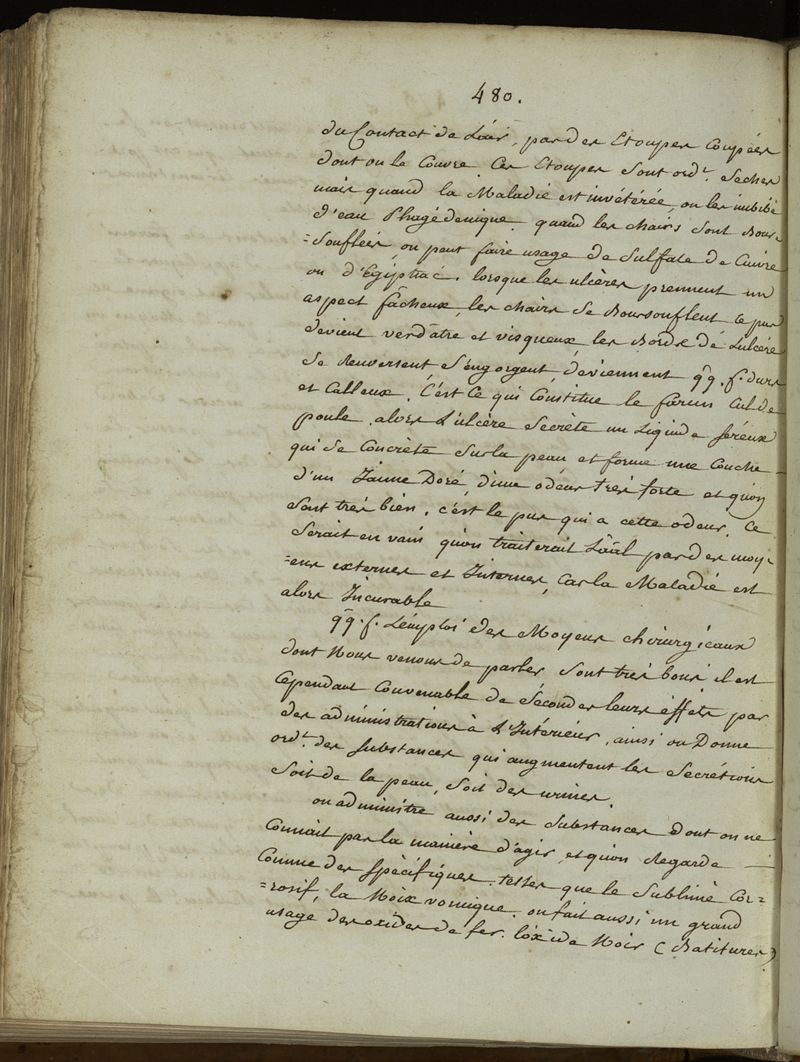 480.
du Contact de L'air, par des Etoupes Coupées
dont on le Couvre. Ces Etoupes sont ord.t seches
mais quand la Maladie est invétérée, on les imbibe
d'eau Phagédenique. quand les chairs sont Bour=
=soufleés, on peut faire usage de Sulfate de Cuivre
ou d'Egiptiac. lorsque les ulcères prennent un
aspect fâcheux, les chairs se Boursouflent le pus
devient verdatre et visqueux les Bords de L'ulcére
se Renversent s'engorgent, deviennent qq. f. durs
et Calleux. C'est Ce qui Constitue le farcin Cul de
poule. alors L'ulcère Secrète un Liquide séreux
qui se Concrète sur la peau et forme une Couche
d'un Jaune Doré, d'une odeur trés forte et qu'on
sent trés bien, c'est le pus qui a cette odeur. Ce
serait en vain qu'on traiterait L'aâl par des moy=
=ens externes et Internes, Car la Maladie est
alors Incurable
qq. f. L'emploi des Moyens chirurgicaux
dont Nous venons de parler sont trés bons il est
Cependant Convenable de Séconder leurs éffets par
des administrations à L'Intérieur, ainsi on Donne
ord.t des substances qui augmentent les Secrétions
soit de la peau, soit des urines.
on administre aussi des Substances dont on ne
Connait pas la manière d'agir, et qu'on Regarde
Comme des spécifiques. telles que le Sublimé Cor=
=rosif, la Noix vomique. on fait aussi un grand
usage des oxides de fer. l'oxide Noir (Batitures)